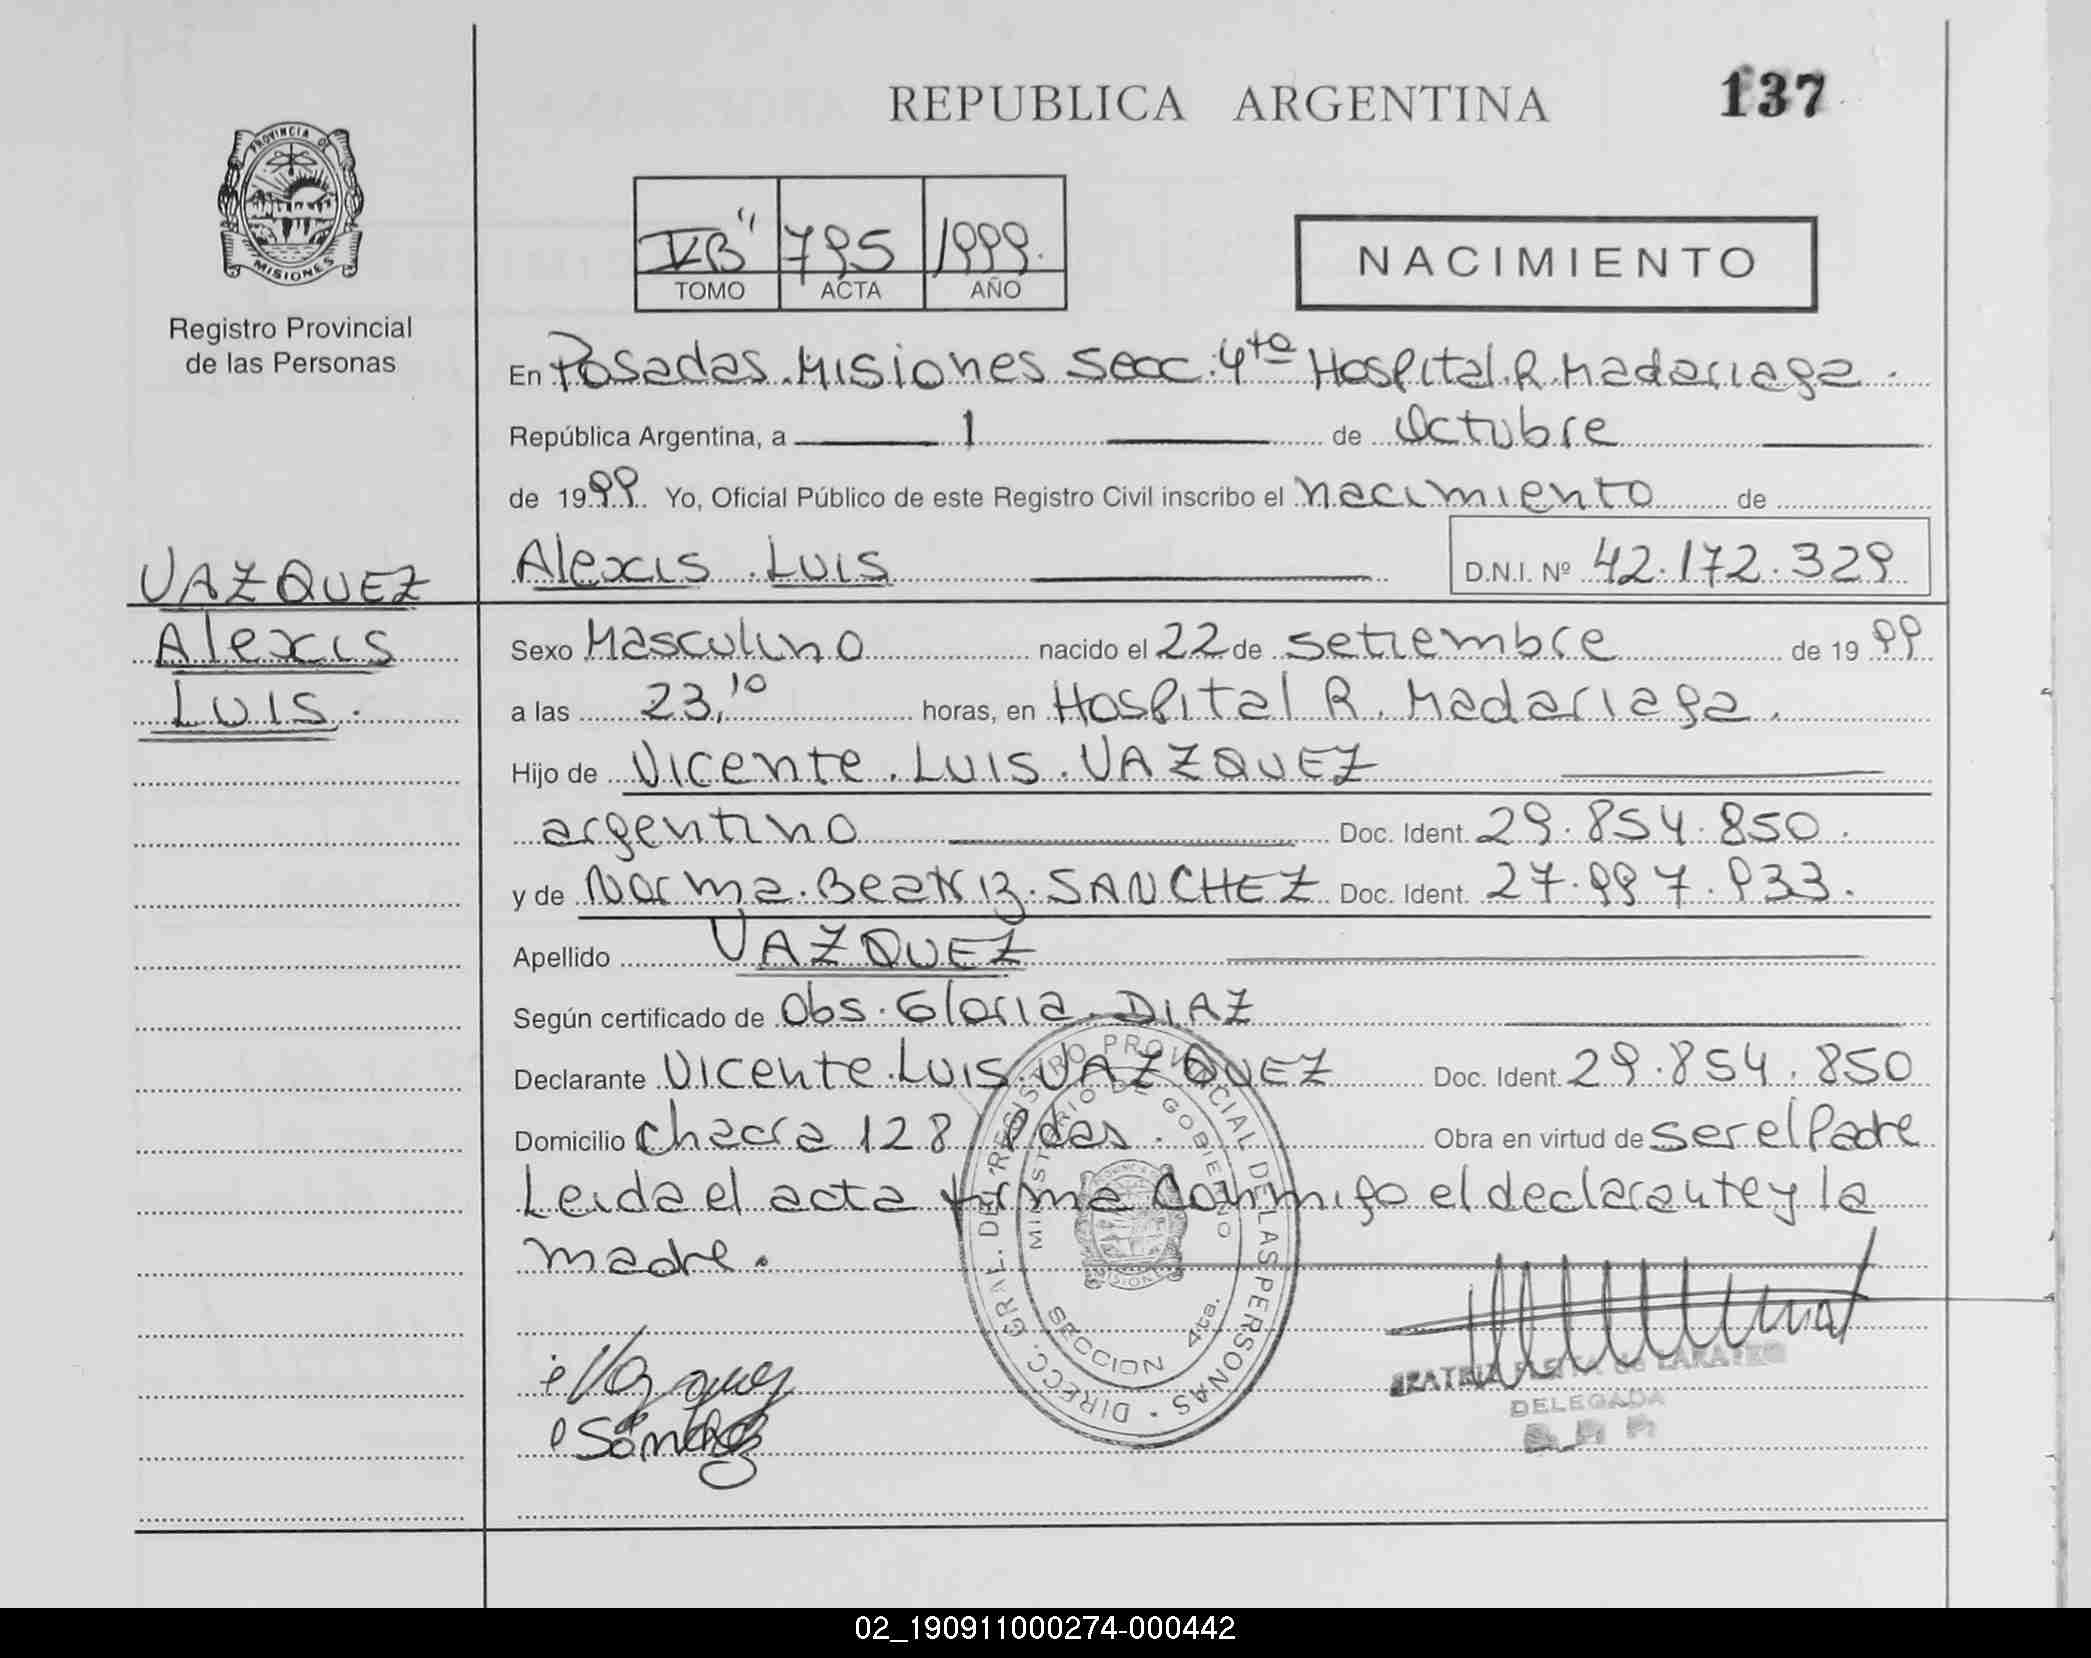 REPUBLICA ARGENTINA
137
PROVINCIA DE
MISIONES
Registro Provincial
de las Personas
"B" 795 1999.
TOMO ACTA AÑO
NACIMIENTO
En Posadas. Misiones Secc. 4ta Hospital. R. Madariaga.
República Argentina, a 1 de Octubre
de 1999. Yo, Oficial Público de este Registro Civil inscribo el nacimiento de
Alexis. Luis D.N.I. Nº 42.172.329
VAZQUEZ
Alexis
Luis.
Sexo Masculino nacido el 22 de setiembre de 1999
a las 23,10 horas, en Hospital R. Madariaga.
Hijo de Vicente. Luis. VAZQUEZ
argentino Doc. Ident. 29.854.850.
y de Norma. Beatriz. SANCHEZ Doc. Ident. 27.997.933.
Apellido VAZQUEZ
Según certificado de Obs. Gloria. DIAZ
Declarante Vicente. Luis. VAZQUEZ Doc. Ident. 29.854.850
Domicilio Chacra 128 Pdas. Obra en virtud de ser el Padre
Leida el acta firma conmigo el declarante y la
madre.
DIRECC. GRAL. DEL REGISTRO PROVINCIAL DE LAS PERSONAS
MINISTERIO DE GOBIERNO
MISIONES
SECCION 4ta.
Vazquez
Sanchez
DELEGADA
02_190911000274-000442